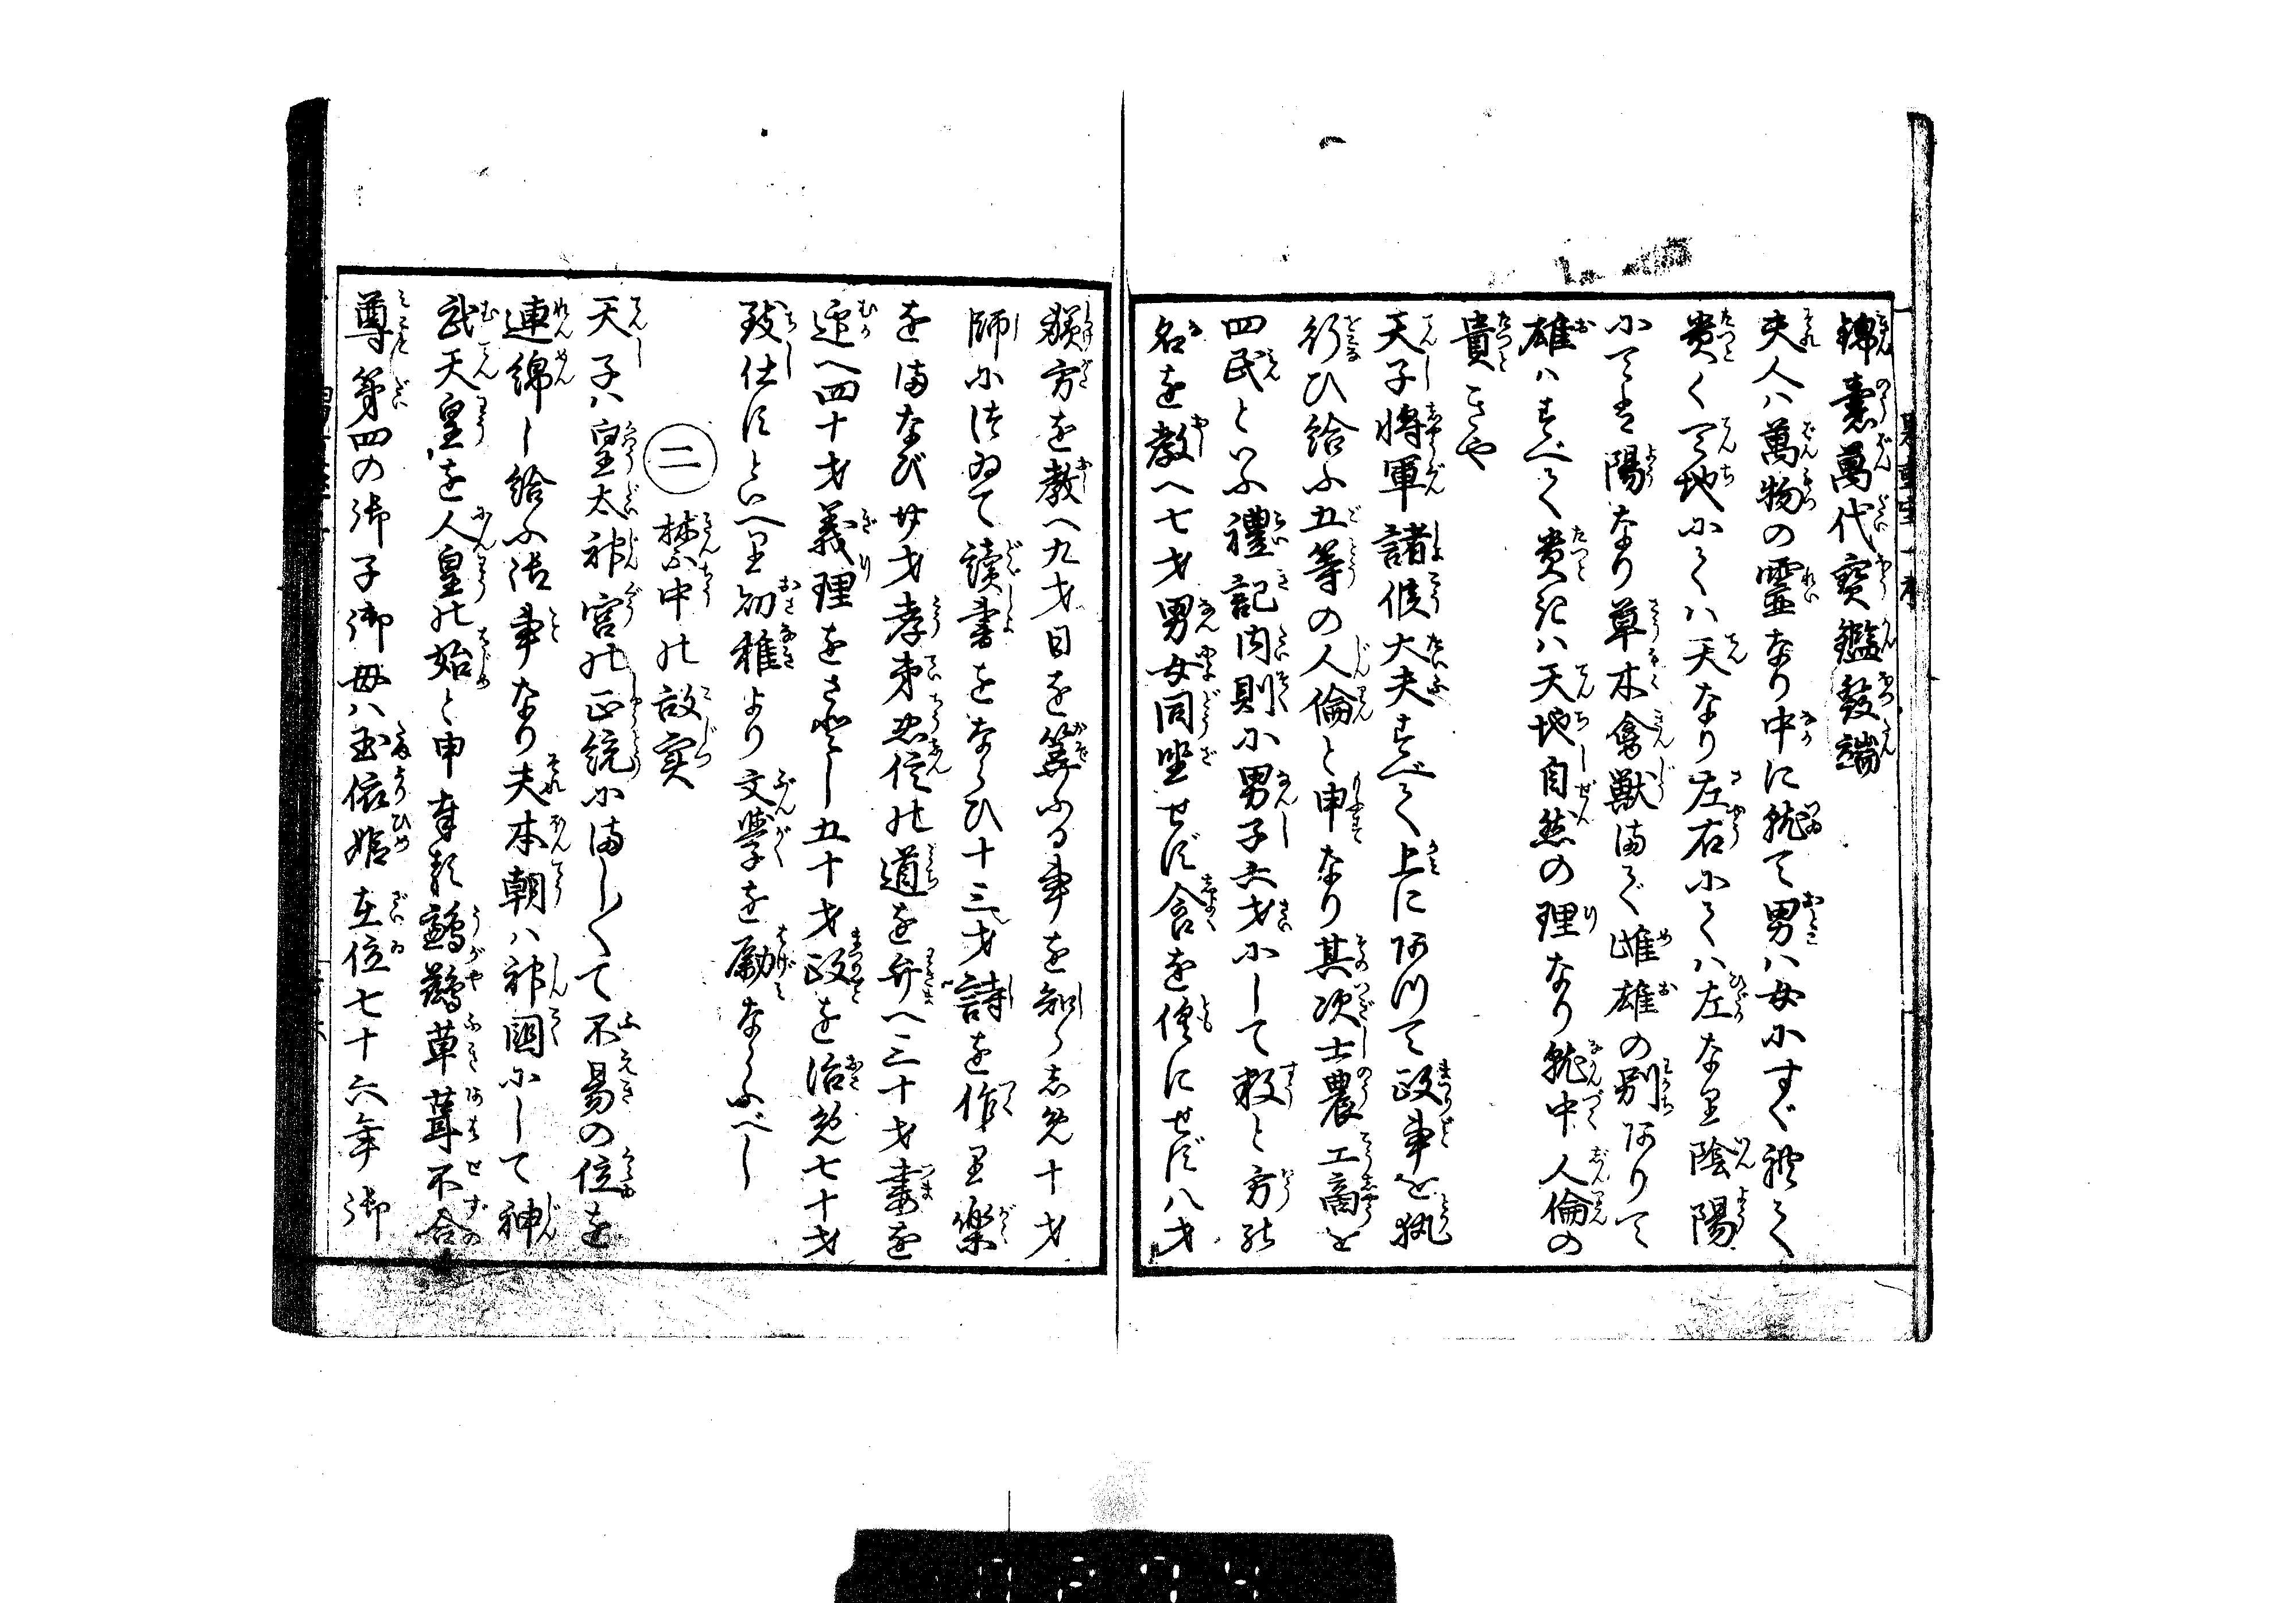 錦嚢萬代寳鑑發端
夫人ハ萬物の霊なり中に就て男ハ女にすぐ礼て
貴くて地にてハ天なり左右にてハ左なり陰陽
にてハ陽なり草木禽獣まで雌雄の別ありて
雄ハすべて貴きハ天地自然の理なり就中人倫の
貴きをや
天子将軍諸侯大夫すべて上に阿つて政事を執
行ひ給ふ五等の人倫と申なり其次士農工商を
四民といふ禮記内則に男子六才にして数と方の
名を教へ七才男女同坐せず食を倶にせず八才
讓方を教へ九才日を算ふる事を知らしめ十才
師にしたがひて讀書をならひ十三才詩を作り楽
をまなび廿才孝弟忠信の道を弁へ三十才妻を
迎へ四十才義理をさとし五十才政を治め七十才
致仕すといへり幼稚より文學を励ならふべし
㊁ 禁中の故実
天子ハ皇太神宮の正統にましくて不易の位を
連綿し給ふ御事なり夫本朝ハ神國にして神
武天皇を人皇の始と申奉る鸕鷀草葺不合
尊第四の御子御母ハ玉依姫在位七十六年御